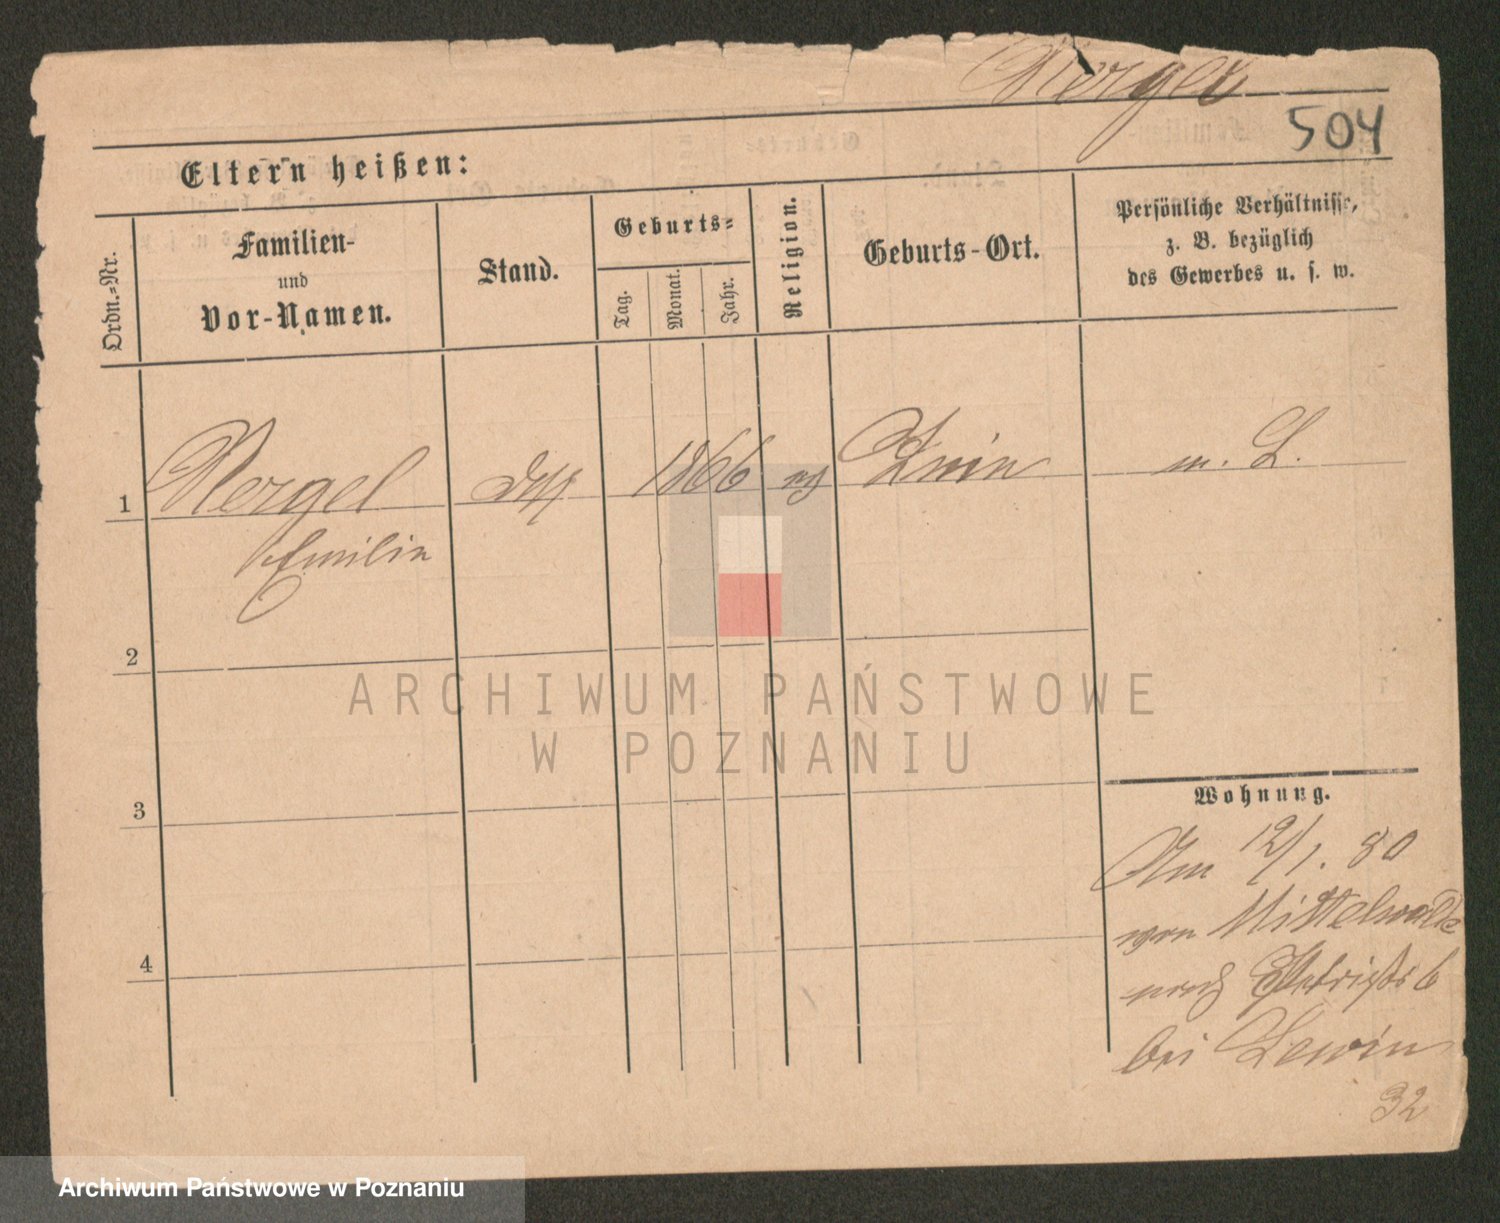 Mergel
504
Eltern heißen:
Ordn.=Nr.
Familien-
und
Vor-Namen.
Stand.
Geburts=
Tag.
Monat.
Jahr.
Religion.
Geburts-Ort.
Persönliche Verhältnisse,
z. B. bezüglich
des Gewerbes u. s. w.
1
Mergel
1866
m. L.
Emilie
2
3
4
Wohnung.
12/1. 80
von Mittelwalde
nach
bei Lewin
32
ARCHIWUM PAŃSTWOWE
W POZNANIU
Archiwum Państwowe w Poznaniu